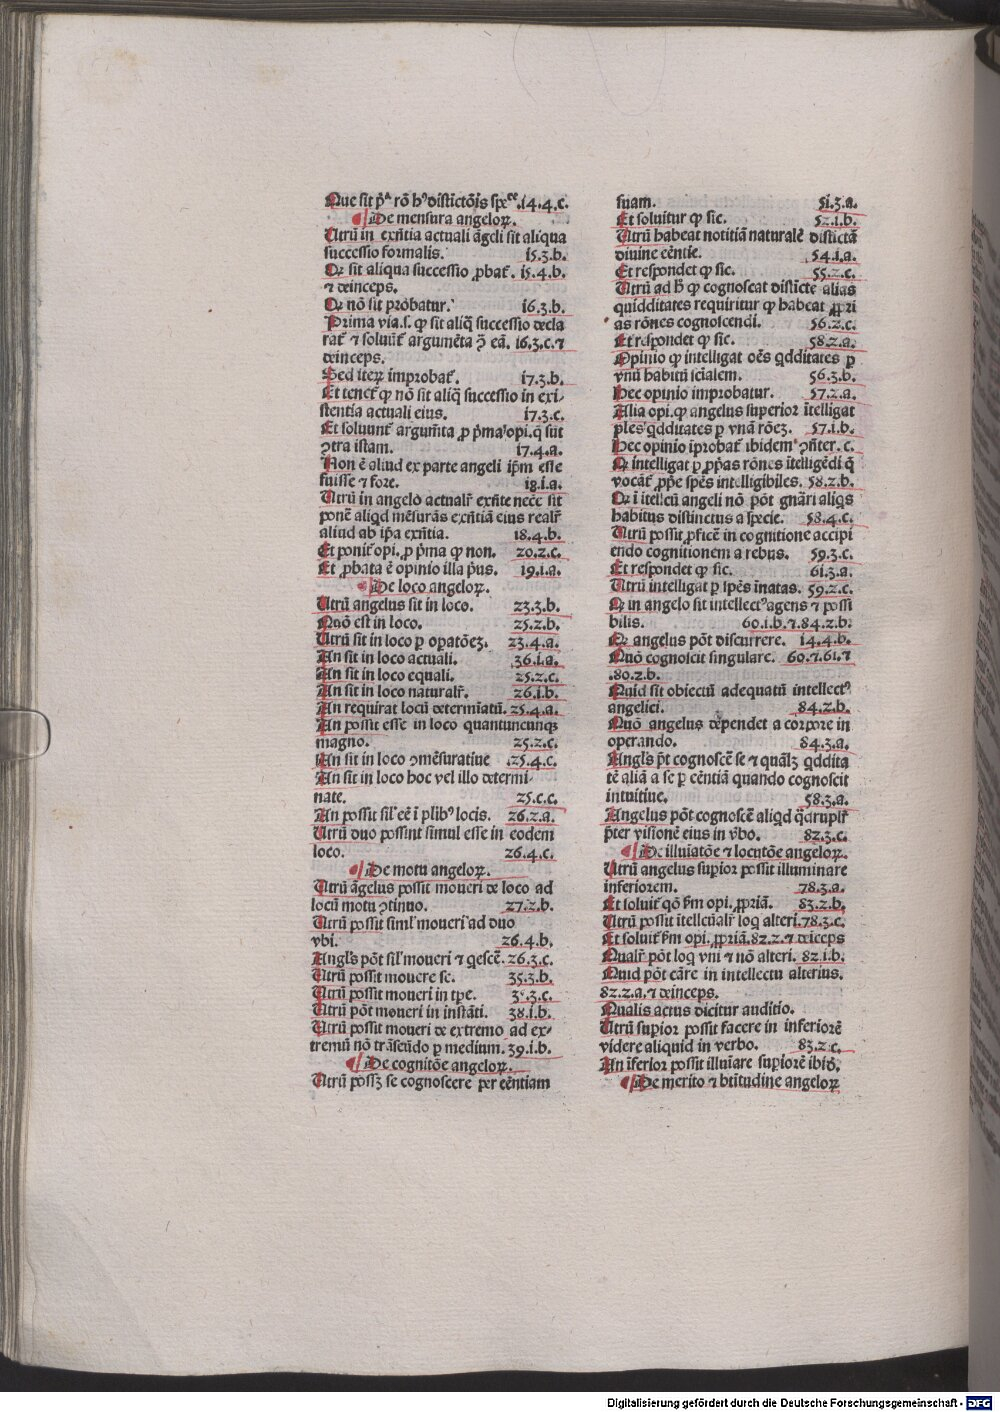 Que sit pᵃ rō hꝰ distictōis speᵉᵉ. 14.4.c.
De mensura angeloꝝ.
Utrū in exñtia actuali āgeli sit aliqua
successio formalis. 15.3.b.
Qꝛ sit aliqua successio ꝓbat᷑. 15.4.b.
⁊ deinceps.
Qꝛ nō sit probatur. 16.3.b.
Prima via.s. ꝙ sit aliq̄ successio decla
rat᷑ ⁊ soluūt᷑ argumēta ꝯ̄ eā. 16.3.c.⁊
deinceps.
Sed iteꝝ improbat᷑. 17.3.b.
Et tenet᷑ ꝙ nō sit aliq̄ successio in exi-
stentia actuali eius. 17.3.c.
Et soluunt᷑ argum̄ta ꝓ p̄ma opi. q̄ sūt
ꝯtra istam. 17.4.a.
Non ē aliud ex parte angeli ip̄m esse
fuisse ⁊ fore. 18.1.a.
Utrū in angelo actualr̄ exn̄te necē sit
ponē aliqd mēsurās exn̄tiā eius realr̄
aliud ab ip̄a exn̄tia. 18.4.b.
Et ponit᷑ opi. ꝓ p̄ma ꝙ non. 20.2.c.
Et ꝓbata ē opinio illa p̄us. 19.1.a.
De loco angeloꝝ.
Utrū angelus sit in loco. 23.3.b.
Quō est in loco. 25.2.b.
Utrū sit in loco ꝑ oꝑatōeꝫ. 23.4.a.
An sit in loco actuali. 36.1.a.
An sit in loco equali. 25.2.c.
An sit in loco naturalr̄. 26.1.b.
An requirat locū determiatū. 25.4.a.
An possit esse in loco quantuncunqꝫ
magno. 25.2.c.
An sit in loco ꝯmēsuratiue .25.4.c.
An sit in loco hoc vel illo determi-
nate. 25.c.c.
An possit sil᷑ eē ī plibꝰ locis. 26.2.a.
Utrū duo possint simul esse in eodem
loco. 26.4.c.
De motu angeloꝝ.
Utrū āgelus possit moueri de loco ad
locū motu ꝯtinuo. 27.2.b.
Utrū possit siml᷑ moueri ad duo
vbi. 26.4.b.
Angl᷑s pōt sil᷑ moueri ⁊ qescē. 26.3.c.
Utrū possit mouere se. 35.3.b.
Utrū possit moueri in tp̄e. 3.3.c.
Utrū pōt moueri in instāti. 38.1.b.
Utrū possit moueri de extremo ad ex-
tremū nō trāseūdo ꝑ medium. 39.1.b.
De cognitōe angeloꝝ.
Utrū possꝫ se cognoscere per eēntiam
suam. 51.3.a.
Et soluitur ꝙ sic. 52.1.b.
Utrū habeat notitiā naturalē distictā
diuine eēntie. 54.1.a.
Et respondet ꝙ sic. 55.2.c.
Utrū ad h̄ ꝙ cognoscat disticte alias
quidditates requiritur ꝙ habeat ꝓpri
as rōnes cognoscendi. 56.2.c.
Et respondet ꝙ sic. 58.2.a.
Opinio ꝙ intelligat oēs qdditates ꝑ
vnū habitū sciālem. 56.3.b.
Hec opinio improbatur. 57.2.a.
Alia opi. ꝙ angelus superior ītelligat
ples qdditates ꝑ vnā rōeꝫ. 57.1.b.
Hec opinio iprobat᷑ ibidem ꝯn̄ter. c.
Qꝛ intelligat ꝑ ꝓp̄as rōnes ītelligēdi q̄
vocāt᷑ ꝓp̄e spēs intelligibiles. 58.2.b.
Qꝛ ī itellcū angeli nō pōt gnāri aliqs
habitus distinctus a specie. 58.4.c.
Utrū possit ꝓficē in cognitione accipi
endo cognitionem a rebus. 59.3.c.
Et respondet ꝙ sic. 61.3.a.
Utrū intelligat ꝑ spēs īnatas. 59.2.c.
Qꝛ in angelo sit intellectꝰ agens ⁊ possi
bilis. 60.1.b.⁊.84.2.b.
Qꝛ angelus pōt discurrere. 14.4.b.
Quō cognoscit singulare. 60.⁊.61.⁊
.80.2.b.
Quid sit obiectū adequatū intellectꝰ
angelici. 84.2.b.
Quō angelus dependet a corpore in
operando. 84.3.a.
Angl᷑s pōt cognoscē se ⁊ qualꝫ qddita
tē aliā a se ꝑ eēntiā quando cognoscit
intuitiue. 58.3.a.
Angelus pōt cognoscē aliqd q̄druplr̄
p̄ter visionē eius in v̄bo. 82.3.c.
De illuīatōe ⁊ locutōe angeloꝝ.
Utrū angelus supior possit illuminare
inferiorem. 78.3.a.
Et soluit᷑ qō s̄m opi. ꝓpriā. 83.2.b.
Utrū possit ītellcūalr̄ loq alteri. 78.3.c.
Et soluit᷑ s̄m opi. ꝓpriā. 82.2.⁊ deiceps
Qualr̄ pōt loq vni ⁊ nō alteri. 82.1.b.
Quid pōt cāre in intellectu alterius.
82.2.a.⁊ deinceps.
Qualis actus dicitur auditio.
Utrū supior possit facere in inferiorē
videre aliquid in verbo. 83.2.c.
An īferior possit illuīare supiorē ibid̄.
De merito ⁊ btitudine angeloꝝ
Digitalisierung gefördert durch die Deutsche Forschungsgemeinschaft - DFG